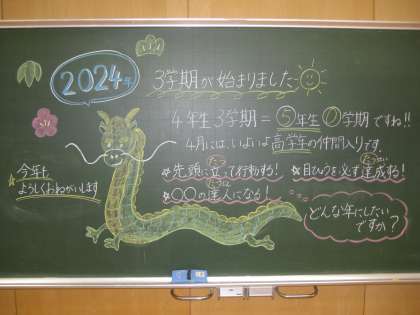 2024年
3学期が始まりました
4年生3学期=⑤年生⓪学期ですね!!
4月には、いよいよ高学年の仲間入りです。
☆先頭に立って行動する!
☆目ひょうを必ず達成する!
☆〇〇の達人になる!
今年も
よろしくおねがいします
どんな年にしたい
ですか?